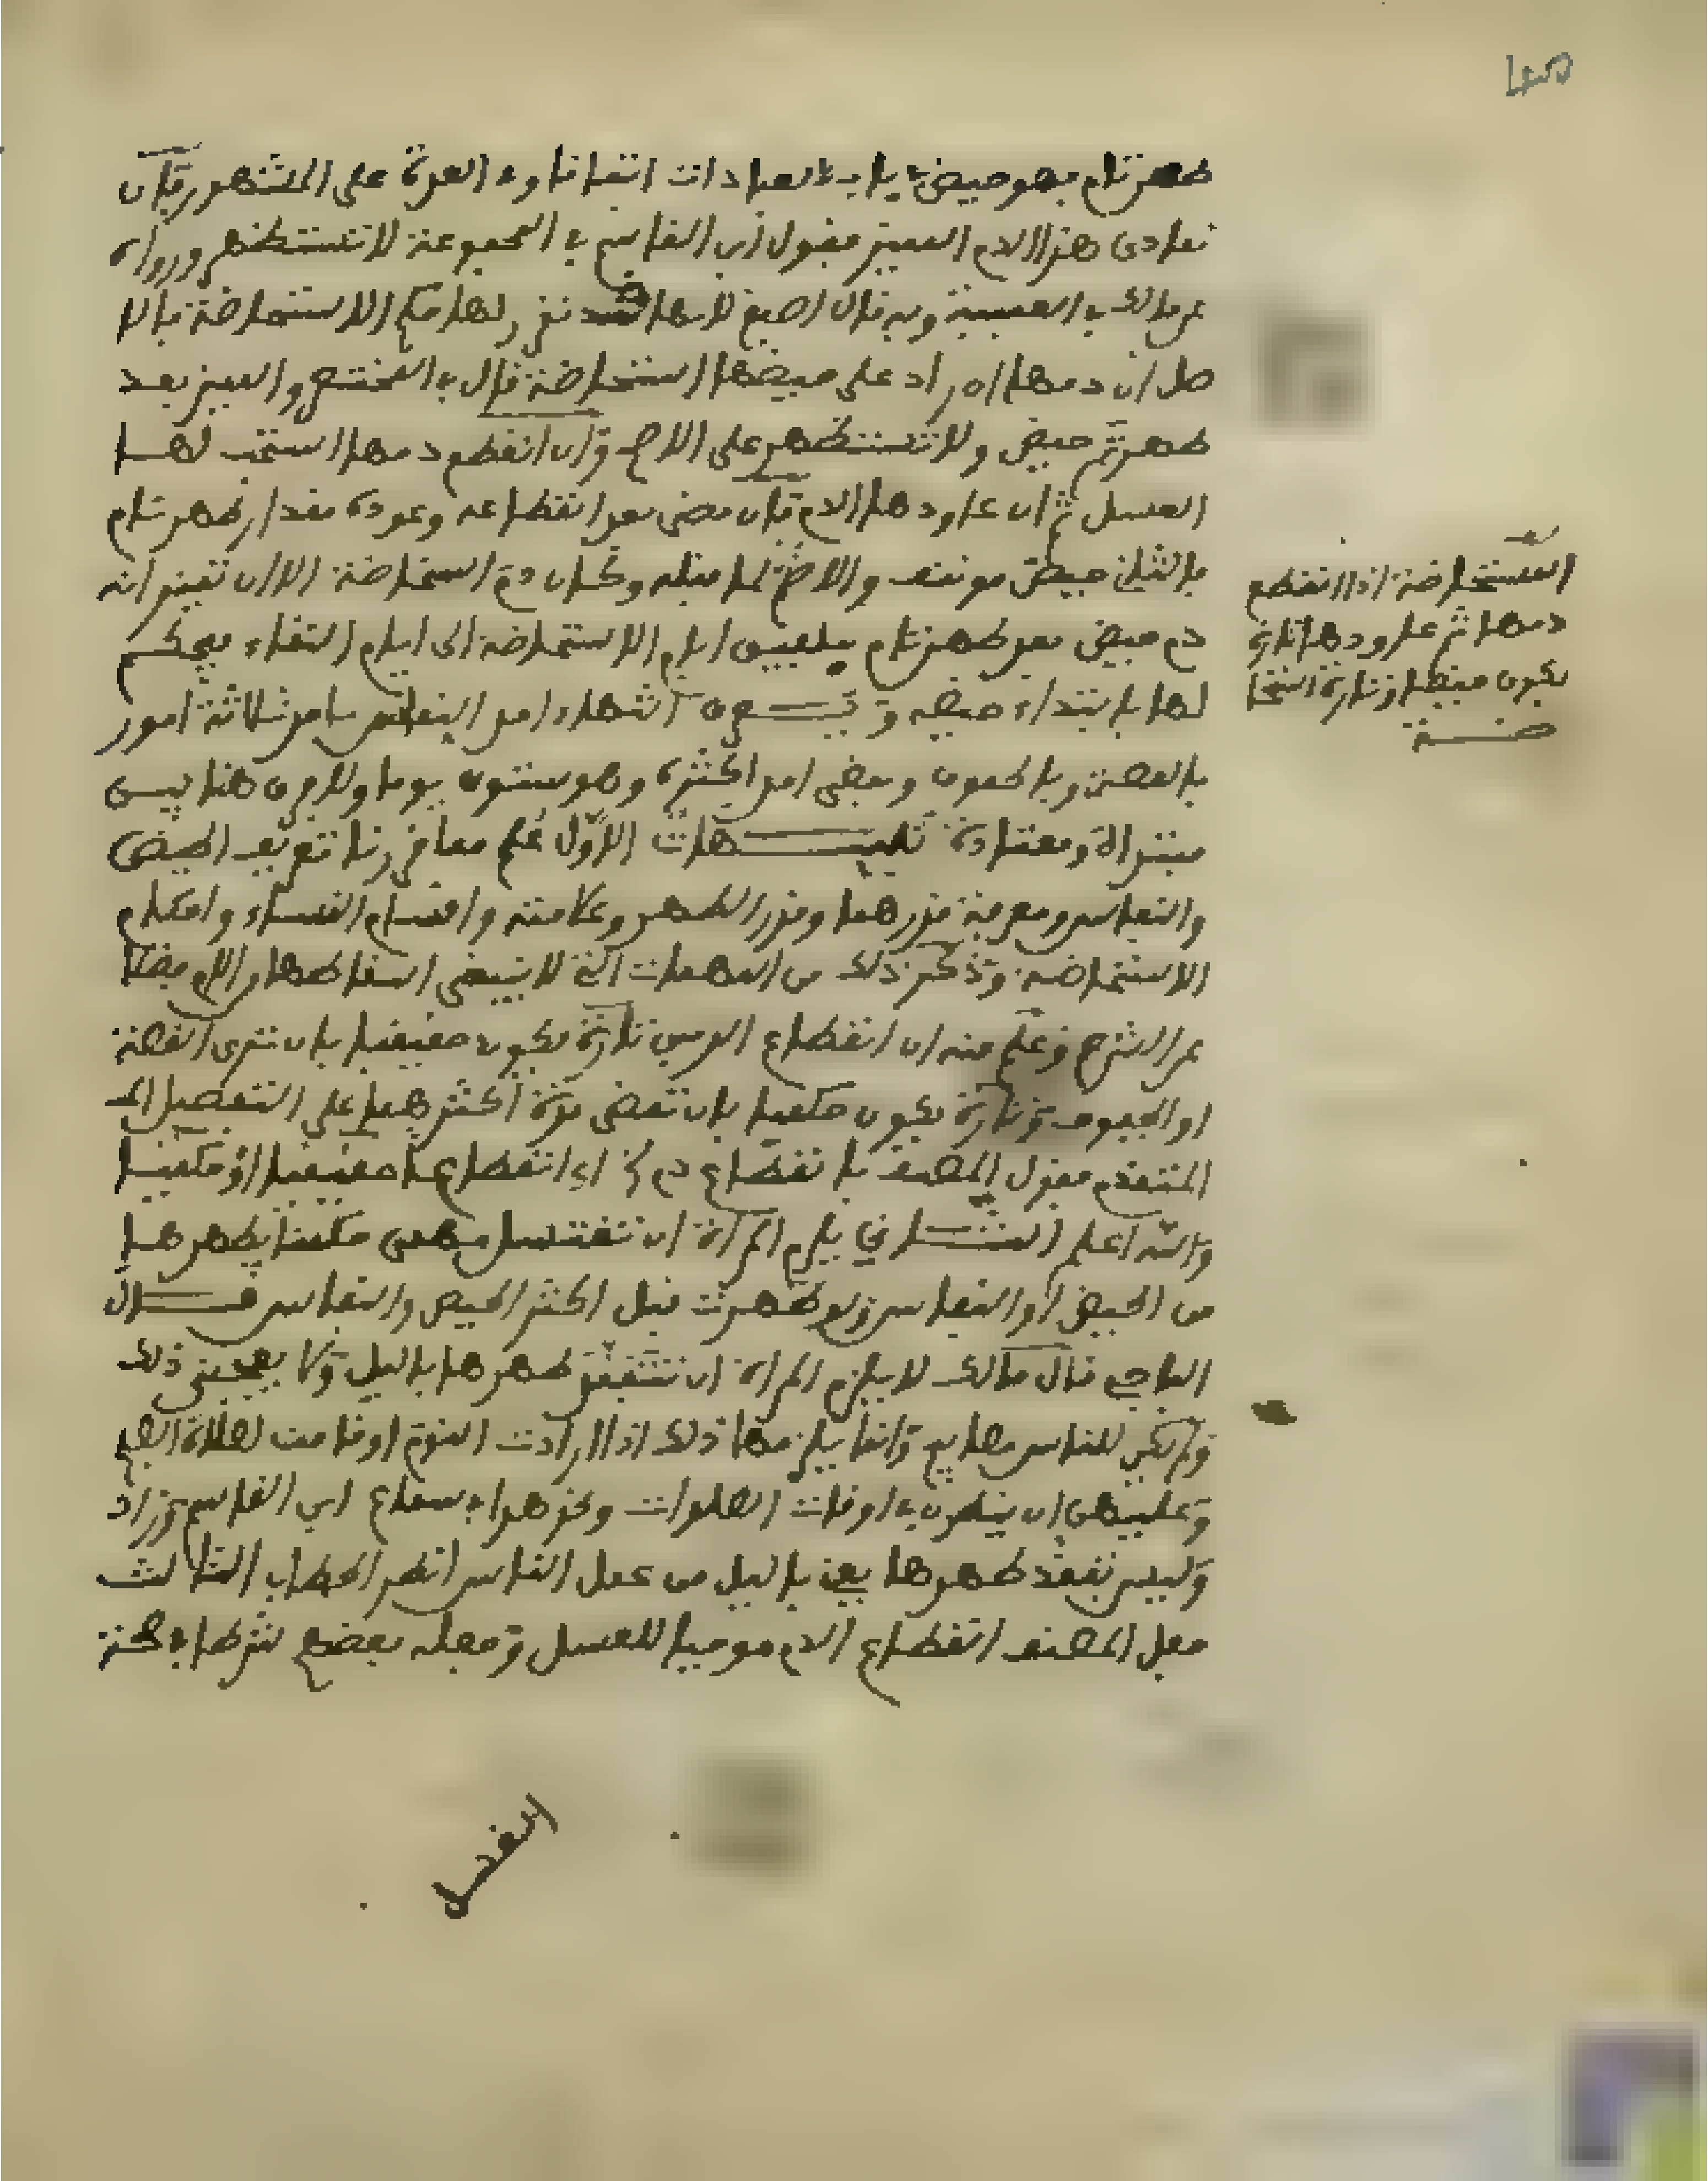 طهر تام فهو حيض في باب العبادات اتفاقا وفي العدة على المشهور فإن
تمادى هذا الدم المميز فقول ابن القاسم في المجموعة لا تستظهر ورواه
عن مالك في العتبية وبه قال اصبغ لانها قد تقرر لها حكم الاستحاضة فالا
صل ان دمها اذا زاد على حيضها استحاضة قال في المختصر والمميز بعد
طهر تم حيض ولا تستظهر على الاصح وإن انقطع دمها استحب لها
الغسل ثم ان عاودها الدم فإن مضى بعد انقطاعه وعوده مقدار طهر تام
فالثاني حيض مؤتنف والا ضم لما قبله وكان دم استحاضة الا ان تميز انه
دم حيض بعد طهر تام ايام الاستحاضة الى ايام النقاء فيحكم
لها بابتداء حيضه انتهاء امد النفاس باحد ثلاثة امور
بالقصة وبالجفوف ومضي امد اكثره وهو ستون يوما ولا فرق هنا بين
مبتداة ومعتادة تنبيهات الاول علم مما قررنا تعريف الحيض
والنفاس ومعرفة قدرهما وقدر الطهر وعلامته واقسام النساء واحكام
الاستحاضة وذكر ذلك من المهمات التي لا ينبغي اسقاطها
عن الشرح وعلم منه ان انقطاع الدمين تارة يكون حقيقيا بان ترى القصة
او الجفوف وتارة يكون حكميا بان تمضي مدة اكثرهما على التفصيل
المتقدم فقول المصنف بانقطاع دم اي انقطاعا حقيقيا او حكميا
والله اعلم الثاني يلزم المراة ان تغتسل بطهرها
من الحيض او النفاس ولو طهرت قبل اكثر الحيض والنفاس قال
الباجي قال مالك لا يلزم المراة ان تتفقد طهرها بالليل ولا يعجبني ذلك
ولم يكن للناس مصابيح وانما يلزمها ذلك اذا ارادت النوم او قامت لصلاة الصبح
وعليهن ان ينظرن في اوقات الصلوات ونحو هذا في سماع ابن القاسم وزاد
وليس تفقد طهرها يعني بالليل من عمل الناس انظر الحطاب الثالث
جعل المصنف انقطاع الدم موجبا للغسل وجعله بعضهم شرطا في صحته
المستحاضة اذا انقطع
دمها ثم عاودها تارة
يكون حيضا وتارة استحا
ضة